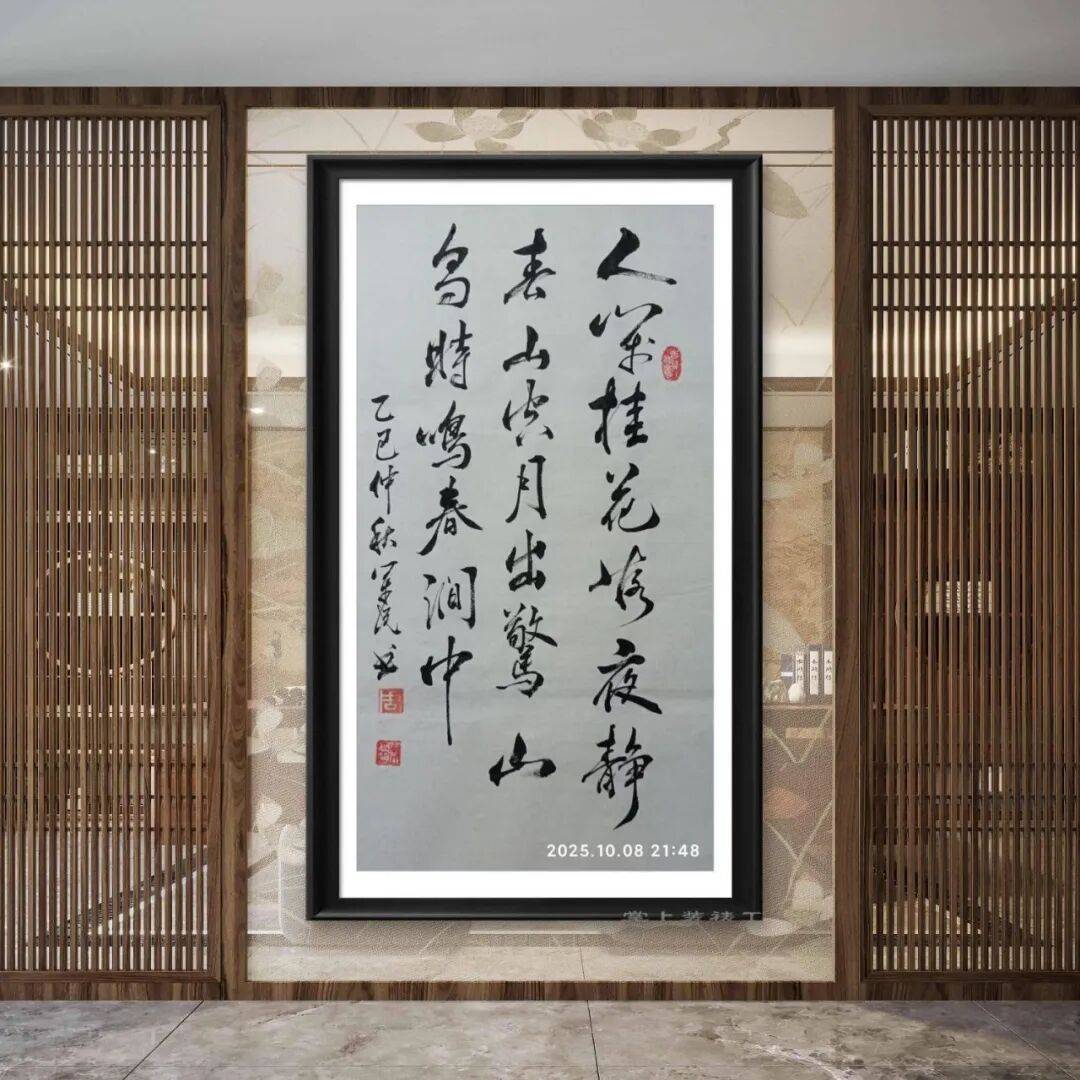 人閑桂花落夜靜
春山空月出驚山
鸟時鳴春澗中
乙巳仲秋 书
2025.10.08 21:48
掌上装裱工